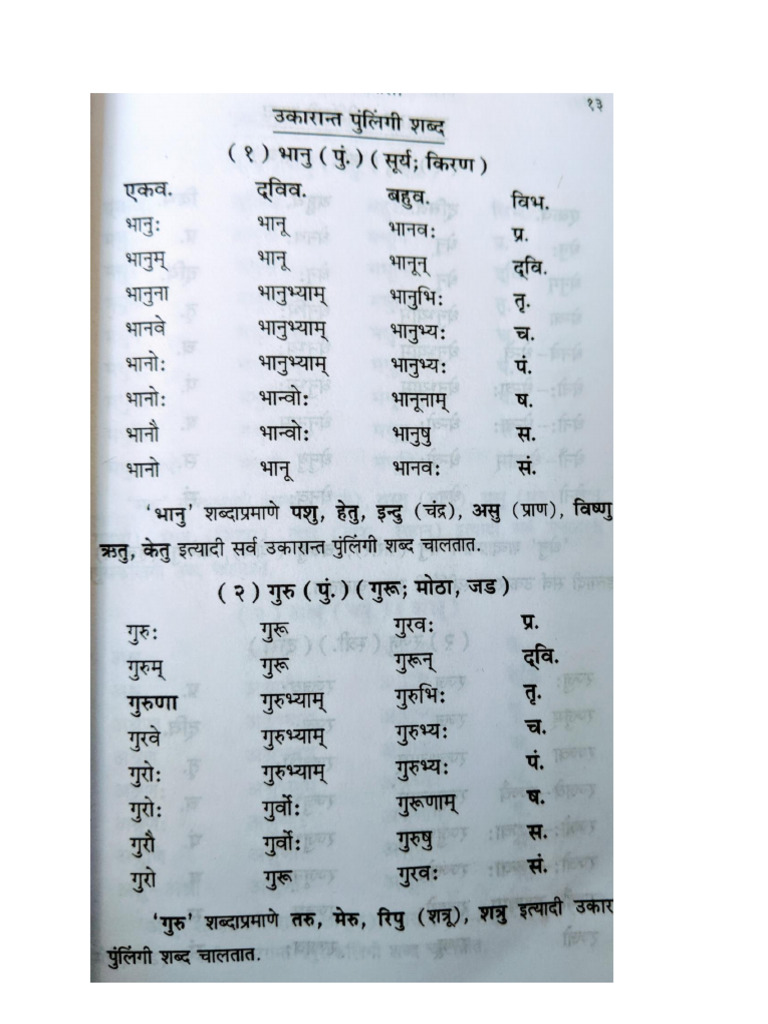 १३
उकारान्त पुंलिंगी शब्द
( १ ) भानु ( पुं. ) ( सूर्य; किरण )
एकव. द्विव. बहुव. विभ.
भानुः भानू भानवः प्र.
भानुम् भानू भानून् द्वि.
भानुना भानुभ्याम् भानुभिः तृ.
भानवे भानुभ्याम् भानुभ्यः च.
भानोः भानुभ्याम् भानुभ्यः पं.
भानोः भान्वोः भानूनाम् ष.
भानौ भान्वोः भानुषु स.
भानो भानू भानवः सं.
'भानु' शब्दाप्रमाणे पशु, हेतु, इन्दु (चंद्र), असु (प्राण), विष्णु
ऋतु, केतु इत्यादी सर्व उकारान्त पुंलिंगी शब्द चालतात.
( २ ) गुरु ( पुं. ) ( गुरू; मोठा, जड )
गुरुः गुरू गुरवः प्र.
गुरुम् गुरू गुरून् द्वि.
गुरुणा गुरुभ्याम् गुरुभिः तृ.
गुरवे गुरुभ्याम् गुरुभ्यः च.
गुरोः गुरुभ्याम् गुरुभ्यः पं.
गुरोः गुर्वोः गुरूणाम् ष.
गुरौ गुर्वोः गुरुषु स.
गुरो गुरू गुरवः सं.
'गुरु' शब्दाप्रमाणे तरु, मेरु, रिपु (शत्रू), शत्रु इत्यादी उकार
पुंलिंगी शब्द चालतात.